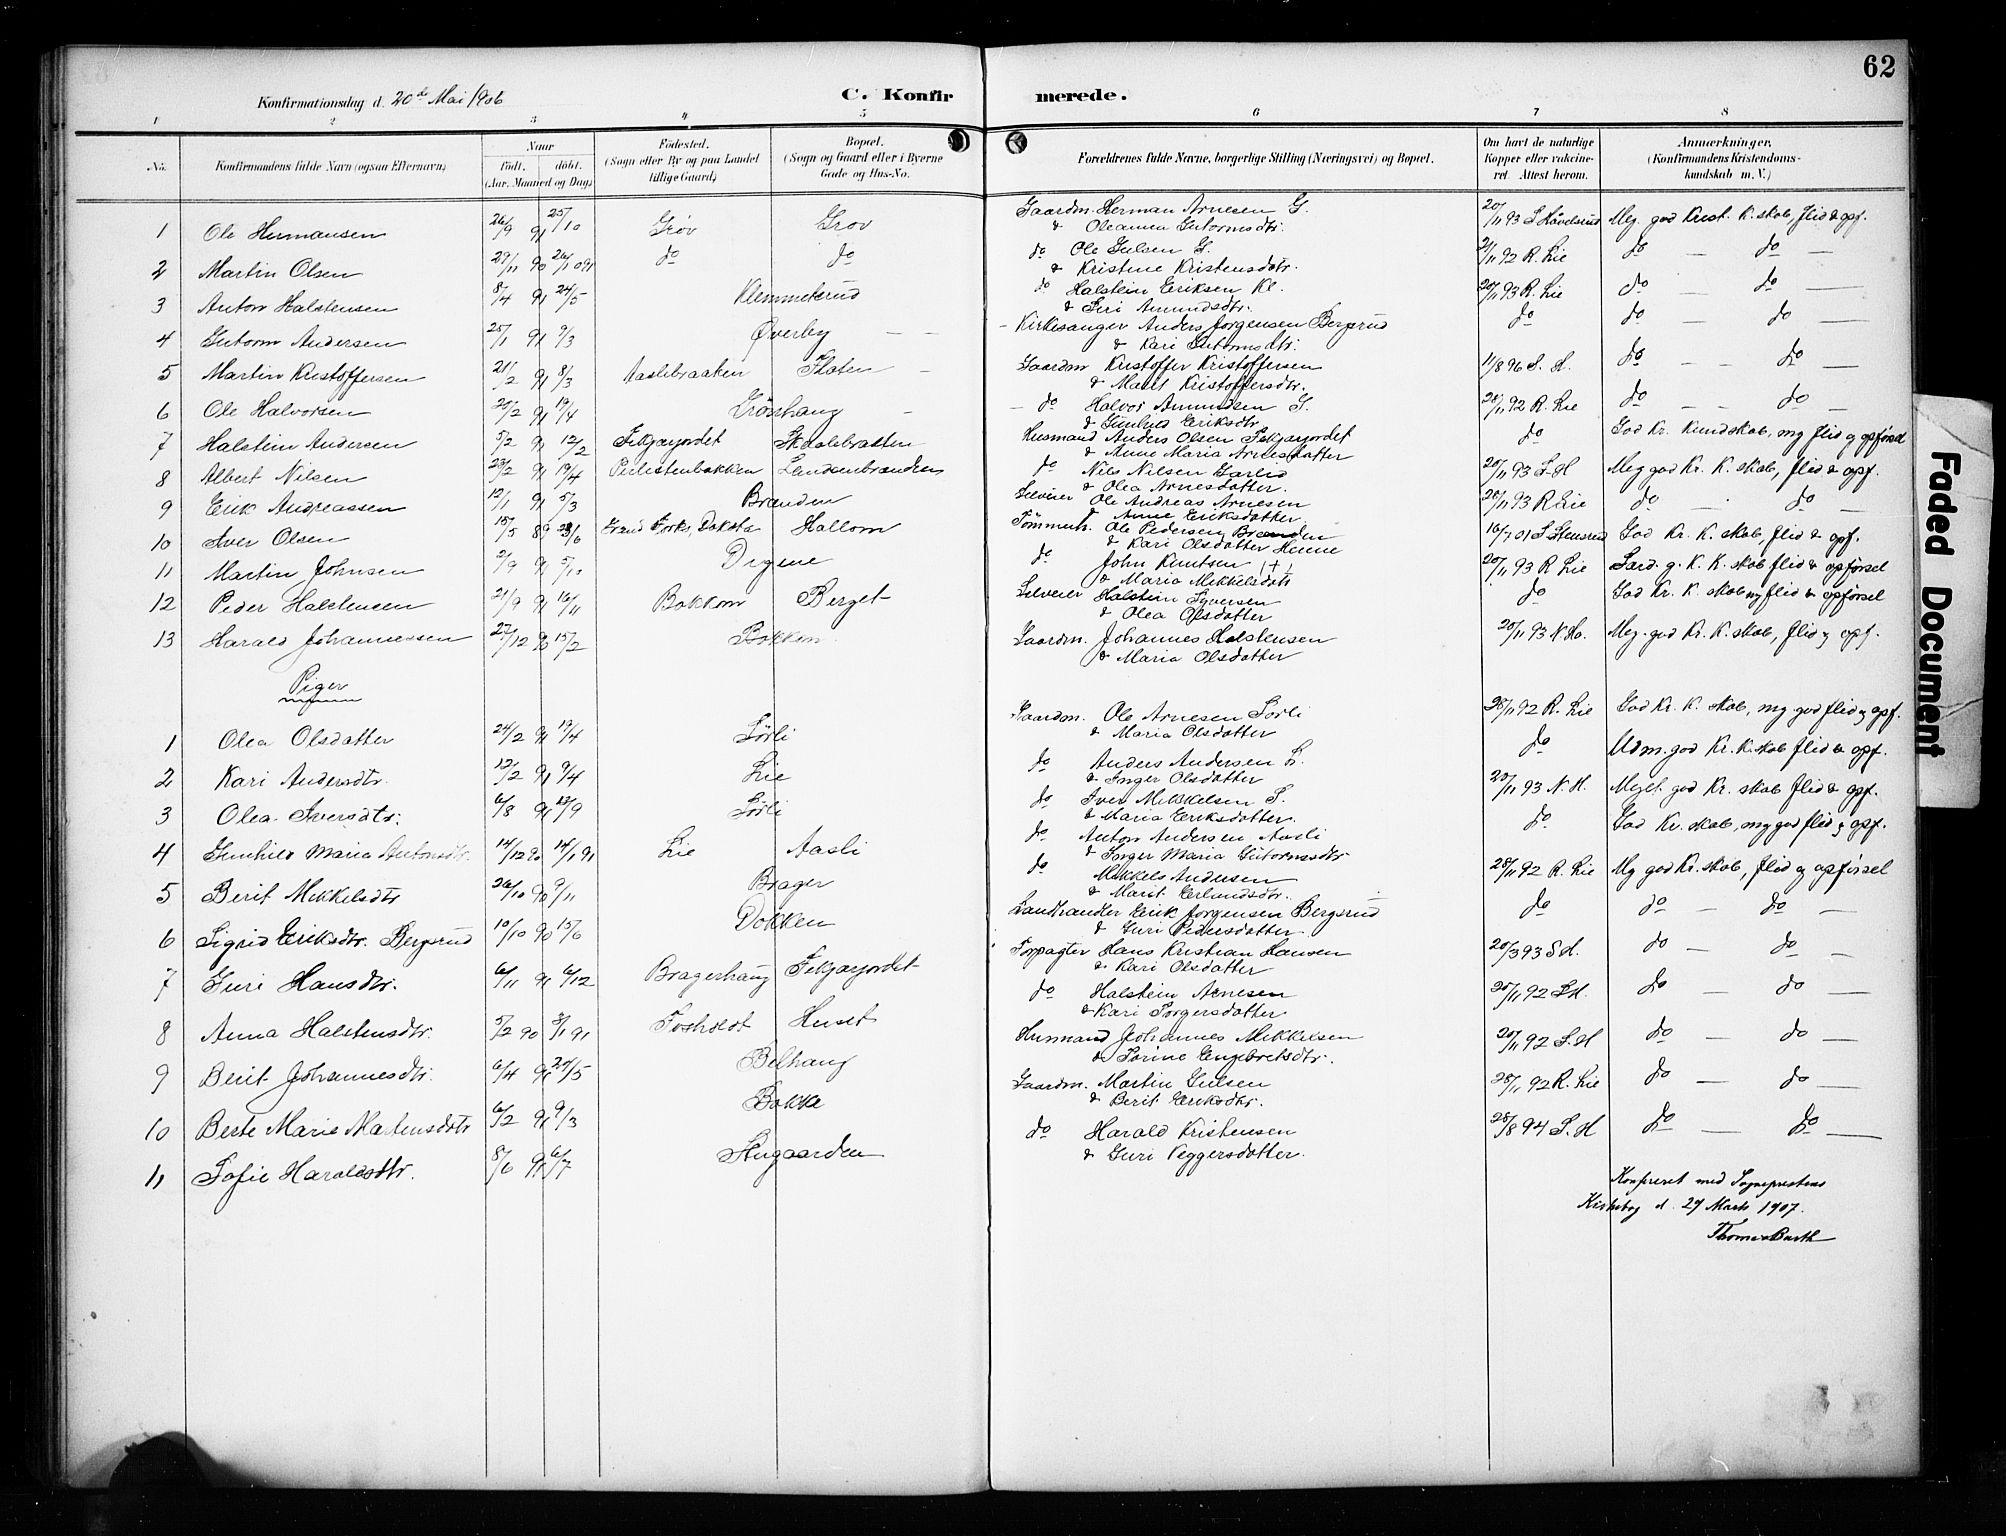 62
Konfirmationsdag d. 20de Mai 1906
C. Konfirmerede.
1 2 3 4 5 6 7 8
No. Konfirmandens fulde Navn (ogsaa Efternavn) Naar Født, døbt. (Aar, Maaned og Dag) Fødested. (Sogn eller By og paa Landet tillige Gaard) Bopæl. (Sogn og Gaard eller i Byerne Gade og Hus-No. Forældrenes fulde Navne, borgerlige Stilling (Næringsvei) og Bopæl. Om havt de naturlige Kopper eller vaccineret. Attest herom. Anmærkninger. (Konfirmandens Kristendomskundskab m. V.)
1 Ole Hermansen 26/9 91 25/10 Grøv Grov Gaardm. Herman Arnesen G. & Oleanna Gutormsdtr. 20/11 93 S. Håvelsrud Meg. god Krist. K. skab, flid & opf.
2 Martin Olsen 29/11 90 26/10 91 do do do Ole Gulsen G. & Kristine Kristensdatr. 21/11 92 R. Lie do — do —
3 Anton Halstensen 8/4 91 24/5 Klemmetsrud do Halstein Eriksen Kl. & Siri Amundsdtr. 20/11 93 R. Lie do — do —
4 Gutorm Andersen 25/1 91 9/3 Øverby — — Kirkesanger Anders Jorgensen Bergsrud & Kari Gutormsdtr. do do — do —
5 Martin Kristoffersen 21/2 91 8/3 Aaslebraaten Floten — Gaardm Kristoffer Kristoffersen & Marit Kristoffersdtr. 11/8 96 S. H. do — do
6 Ole Halvorsen 20/2 91 19/4 Grönhaug — do Halvor Amundsen G. & Gunhild Eriksdtr 28/11 92 R. Lie do — — do —
7 Halstein Andersen 5/2 91 12/2 Fekjarjordet Skaalebraatten Husmand Anders Olsen Fekjarjordet & Anne Maria Arnesdatter do God Kr. Kundskab, mg flid og opførsel
8 Albert Nilsen 23/2 91 19/4 do Nils Nilsen Garlid & Olea Arnesdatter. 20/11 93 S. H Meg god Kr. K. skab, flid & opf.
9 Erik Andreassen 12/1 91 5/3 Brænden Selveier Ole Andreas Arnesen & Anne Eriksdatter. 20/11 93 R Lie do — do —
10 Iver Olsen 15/5 89 23/6 Grand Forks, Dakota Hallom Tömmerh. Ole Pedersen Brænden & Kari Olsdatter Henne 16/7 01 S Stensrud God Kr. K. skab, flid & opf.
11 Martin Johnsen 2/9 91 5/10 Drgene do John Knutsen & Maria Mikkelsdatr 20/11 93 R Lie Særd. g. K. K. skab flid & opførsel
12 Peder Halstensen 21/9 91 16/11 Bakkom Berget Selveier Halstein Syversen & Olea Olsdatter do God Kr. K skab mg flid & opførsel
13 Harald Johannessen 27/12 90 15/2 Bakken Gaardm. Johannes Halstensen & Maria Olsdatter 20/11 93 N. Ho. Meg. god Kr. K. skab, flid og opf.
Piger
1 Olea Olsdatter 24/2 91 19/4 Sørli Gaardm. Ole Arnesen Sorli & Maria Olsdatter 28/11 92 R. Lie God Kr. K. skab, mg god flid og opf.
2 Kari Andersdtr. 12/2 91 9/4 Lie do Anders Andersen L. & Inger Olsdatter do Udm. god Kr. K. skab flid & opf.
3 Olea Iversdtr. 6/8 91 13/9 Sørli do Iver Mikkelsen S. & Maria Eriksdatter. 20/11 93 N. H. Meget god Kr. skab flid & opf.
4 Gunhild Maria Antonsdtr. 14/12 90 14/1 91 Lie Aasli do Anton Andersen Aasli & Inger Maria Gutormsdtr do God Kr. skab, mg god flid og opf.
5 Berit Mikkelsdtr 26/10 90 9/11 Brager do Mikkels Andersen & Marit Erlandsdtr. 28/11 92 R. Lie Mg god Kr. skab, flid og opførsel
6 Sigrid Eriksdtr. Bergsrud 10/10 90 15/6 Dokken Landhandler Erik Jorgensen Bergsrud & Guri Pedersdatter do do — do —
7 Guri Hansdtr. 6/11 91 6/12 Bragerhaug Fekjarjordet Forpagter Hans Kristian Hansen & Kari Olsdatter 20/3 93 S H. do — do —
8 Anna Halstensdtr. 5/2 90 8/1 91 Fosholdt Huset do Halstein Arnesen & Kari Torgersdatter 20/11 92 S. H. do — do —
9 Berit Johannesdtr. 6/4 91 24/5 Belhaug Husmand Johannes Mikkelsen & Sorine Engebretsdtr. 20/11 92 S. H do — do —
10 Berte Marie Martensdatr 6/2 91 9/3 Bakke Gaardm. Martin Gulsen & Berit Eriksdtr. 28/11 92 R. Lie do — do —
11 Sofie Haraldsdtr. 8/6 91 6/7 Stugaarden do Harald Kristensen & Guri Veggersdatter. 28/8 94 S. H do — do —
Konfereret med Sogneprestens
Kirkebog d. 27 Marts 1907.
Thomas Barth
Faded Document